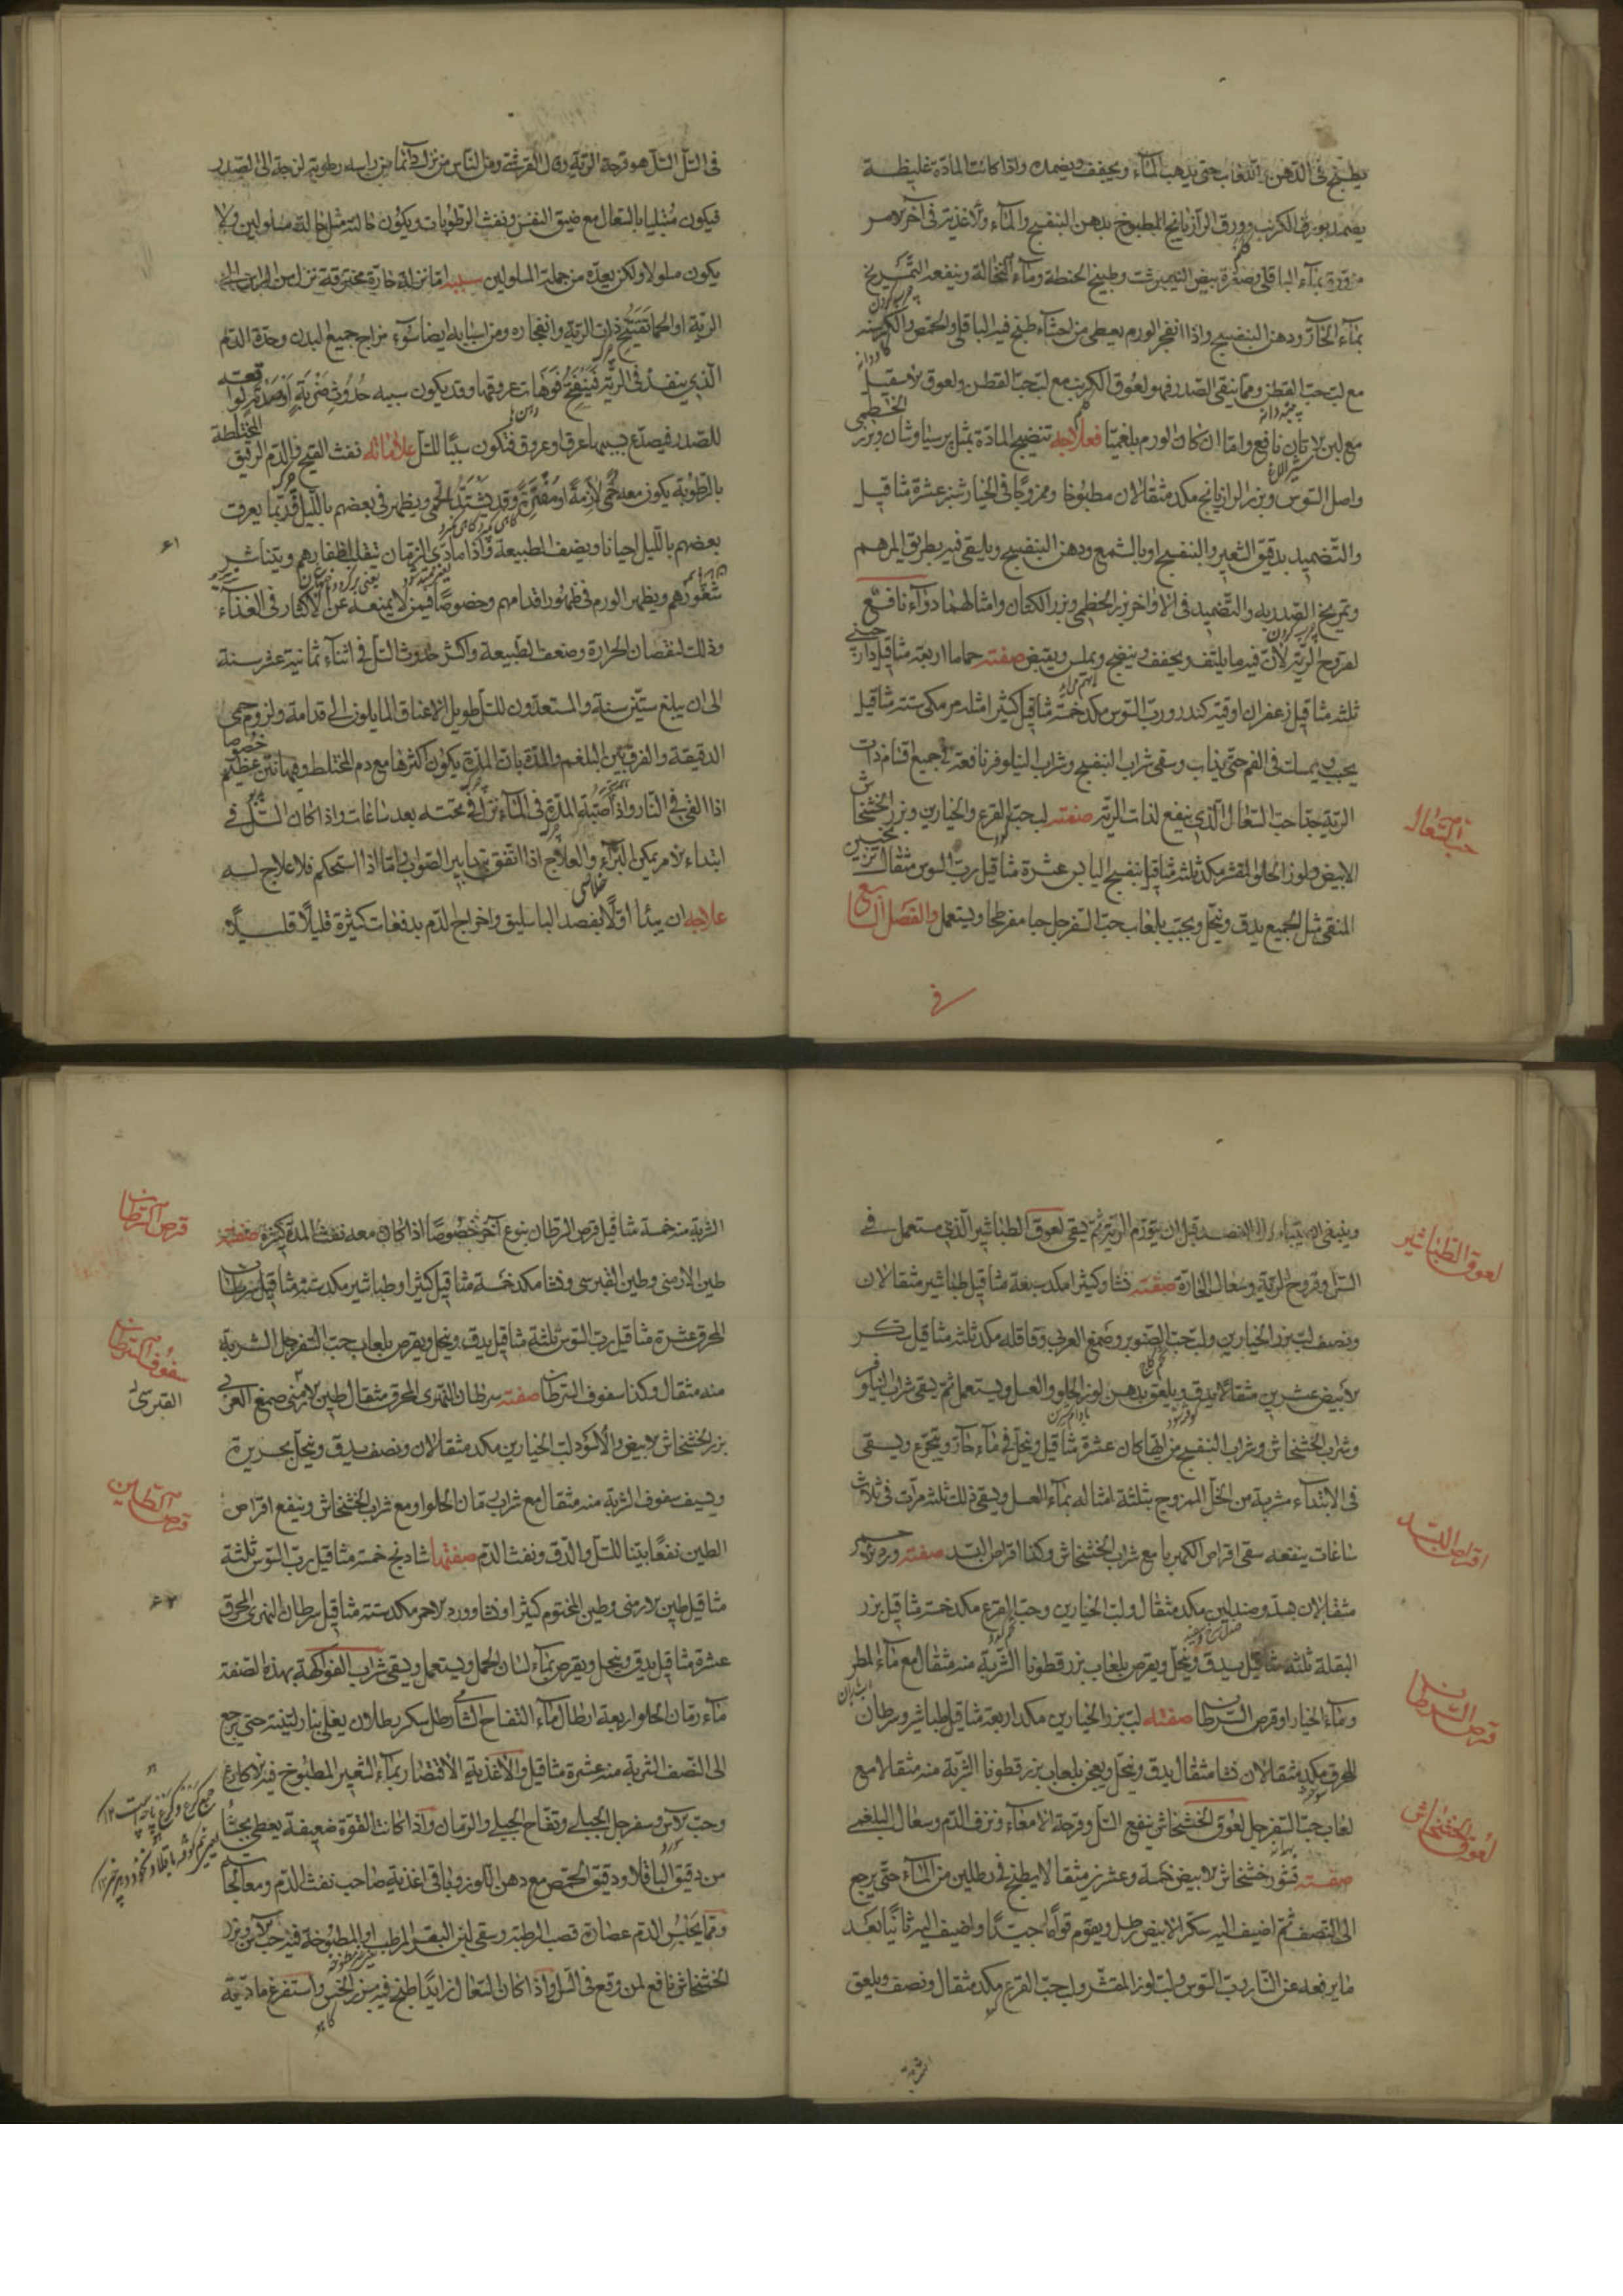 يطبخ فى الدهن واللعاب حتى يذهب الماء ويجفف ويضمد واذا كانت المادة غليظة
يضمد بورق الكرنب وورق الرازيانج المطبوخ بدهن البنفسج والماء والاغذية فى آخر الامر
مزورة بماء الباقلى وصفرة بيض النيمبرشت وطبيخ الحنطة وماء النخالة وينفعه التمريخ
بماء الحار ودهن البنفسج واذا انفجر الورم يعطى من احشاء طبخ فيه الباقلى والحمص والكرسنه
مع لب حب القطن ومما ينقى الصدر فهو لعوق الكرنب مع لب حب القطن ولعوق الاسقيل
مع لبن الاتان نافع واما ان كان الورم بلغميا فعلاجه تنضيج المادة بمثل پرسياوشان وبزر الخطمى
واصل السوس وبزر الرازيانج مكد مثقالان مطبوخا وممزوجا فى الخيار شنبر عشرة مثاقيل
والتضميد بدقيق الشعير والبنفسج او بالشمع ودهن البنفسج ويلقى فيه بطريق المرهم
وتمريخ الصدر به والتضميد فى الاواخر بزر الخطمى وبزر الكتان وامثالهما دواء نافع
لقروح الرية لان فيه ما يلثف ويجفف وينضج ويملس ويقبض صفته حماما اربعة مثاقيل دار چينى
ثلثه مثاقيل زعفران اوقية كندر ورب السوس مكد خمسة مثاقيل كثيرا مثله مر مكى ستة مثاقيل
يحبب ويمسك فى الفم حتى يذاب وسقى شراب البنفسج وشراب النيلوفر نافعة فى جميع اقسام ذات
الرية جدا حب السعال الذى ينفع لذات الرية صفته لب حب القرع والخيارين وبزر الخشخاش
الابيض ولوز الحلو المقشر مكد ثلثه مثاقيل بنفسج اليابس عشرة مثاقيل رب السوس مثقال ترنجبين
المنقى مثل الجميع يدق وينخل ويحبب بلعاب حب السفرجل حبا مفرطحا ويستعمل والفصل السابع
فى
حب السعال
فى السل السل هو قرحة الرية وقال القرشى ومن الناس من نزل دائما من راسه رطوبة لزجة الى الصدر
فيكون مبتليا بالسعال مع ضيق النفس ونفث الرطوبات ويكون حاله مثل حالة مسلولين ولا
يكون مسلولا ولكن بعده من جملة المسلولين سببه اما نزلة حارة محترقة نزل من الراس الى
الرية او الجماتقيح ذات الرية وانفجاره ومن اسبابه ايضا سوء مزاج جميع البدن وحدة الدم
الذى ينفذ فى الرية فينفتح فوهات عروقها وقد يكون سببه حدوث ضربة او صدمة او قعت
للصدر فيصدع بسببها عرق او عروق فتكون سببا للسل علاماته نفث القيح والدم الرقيق المختلطة
بالرطوبة يكون معه حمى لازمة او مفترة وقد يشتد الحمى ويظهر فى بعضهم بالليل وربما يعرق
بعضهم بالليل احيانا ويضعف الطبيعة واذا مادى الزمان تيقلب اظفارهم ويتناثر
شعورهم ويظهر الورم فى ظهور اقدامهم وخصوصا فيمن لا يمنعه عن الاكثار فى الغذاء
وذلك لنقصان الحرارة وضعف الطبيعة واكثر حدوث السل فى اثناء ثمانية عشر سنة
الى ان يبلغ ستين سنة والمستعدون للسل طويل الاعناق المايلون الى قدامه ولزوم حمى
الدقيقة والفرق بين البلغم والمدة بان المدة يكون اكثرها مع دم المختلط وفيها نتن عظيم خصوصا
اذا القى فى النار واذا صبته المدة فى الماء نزل فى تحته بعد ساعات واذا كان السل فى
ابتداء الامر يمكن البرء والعلاج اذا اتفق بتدابير الصواب واما اذا استحكم فلا علاج له
علاجه ان يبدأ اولا بفصد الباسليق واخراج الدم بدفعات كثيرة قليلا قليلا
٦١
وينبغى ان يبتدأ بالفصد قبل ان يتورم الرية ثم يسقى لعوق الطباشير الذى مستعمل فى
السل وقروح الرية وسعال الحارة صفته نشا وكثيرا مكد سبعة مثاقيل طباشير مثقالان
ونصف لب بزر الخيارين ولب حب الصنوبر وصمغ العربى وقاقله مكد ثلثه مثاقيل سكر
الابيض عشرين مثقالا يدق ويلعق بدهن لوز الحلو والعسل ويستعمل ثم يسقى شراب النيلوفر
وشراب الخشخاش وشراب البنفسج من ايها كان عشرة مثاقيل وينحل فى ماء حار ويتجرع ويسقى
فى الابتداء مشربة من الخل الممزوج بثلثة امثاله بماء العسل ويسقى ذلك ثلث مرات فى ثلاث
ساعات ينفعه سقى اقراص الكهربا مع شراب الخشخاش وكذا اقراص البسد صفته ورد الاحمر
مثقالان بسد وصندلين مكد مثقال ولب الخيارين وحب القرع مكد خمسة مثاقيل بزر
البقلة ثلثه مثاقيل يدق وينخل ويقرص بلعاب بزر قطونا الشربة منه مثقال مع ماء المطر
وماء الخيار او قرص السرطان صفته لب بزر الخيارين مكد اربعة مثاقيل طباشير وسرطان
المحرق مكد مثقالان نشا مثقال يدق وينخل ويعجن بلعاب بزر قطونا الشربة منه مثقالا مع
لعاب حب السفرجل لعوق الخشخاش ينفع السل وقرحة الامعاء ونزف الدم وسعال البلغمى
صفته قشور خشخاش الابيض خمسة وعشرين مثقالا يطبخ فى رطلين من الماء حتى يرجع
الى النصف ثم اضيف اليه سكر الابيض رطل ويقوم قواما جيدا واضيف اليه ثانيا بعد
ما يرفعه عن النار رب السوس ولب لوز المقشر ولب حب القرع مكد مثقال ونصف ويلعق
الشربة
لعوق الطباشير
اقراص البسد
قرص السرطان
لعوق الخشخاش
الشربة منه خمسة مثاقيل قرص السرطان بنوع آخر خصوصا اذا كان معه نفث المدة كثيرة صفته
طين الارمنى وطين القبرسى ونشا مكد خمسة مثاقيل كثيرا وطباشير مكد ستة مثاقيل سرطان
المحرق عشرة مثاقيل رب السوس ثلثة مثاقيل يدق وينخل ويقرص بلعاب حب السفرجل الشربة
منه مثقال وكذا سفوف السرطان صفته سرطان النهرى المحرق مثقال طين الارمنى صمغ العربى
بزر الخشخاش الابيض والاسود لب الخيارين مكد مثقالان ونصف يدق وينخل بحريرة
ويسف سفوف الشربة منه مثقال مع شراب رمان الحلو او مع شراب الخشخاش وينفع اقراص
الطين نفعا بينا للسل والدق ونفث الدم صفتها شادنج خمسة مثاقيل رب السوس ثلثة
مثاقيل طين الارمنى وطين المختوم كثيرا ونشا وورد الاحمر مكد ستة مثاقيل سرطان النهرى المحرق
عشرة مثاقيل يدق وينخل ويقرص بماء لسان الحمل ويستعمل ويسقى شراب الفواكهة بهذه الصفة
ماء رمان الحلو اربعة ارطال ماء التفاح الشامى رطل سكر رطلان يغلى بنار لينة حتى يرجع
الى النصف الشربة منه عشرة مثاقيل والاغذية الاقتصار بماء الشعير المطبوخ فيه الاكارع
وحب الآس وسفرجل الجبلى وتفاح الجبلى والرمان واذا كانت القوة ضعيفة يعطى بحشأ
من دقيق الباقلا ودقيق الحمص مع دهن اللوز وباقى اغذية صاحب نفث الدم ومعالجاته
ومما يحبس الدم عصارة قصب الرطبة وسقى لبن البقر المرطب او المطبوخة فيه حب الآس وبزر
الخشخاش نافع لمن وقع فى السل واذا كان السعال زايدا طبخ فيه بزر الخس واستفرغ مادته
قرص السرطان
سفوف السرطان
القبرسى
قرص الطين
٦٢